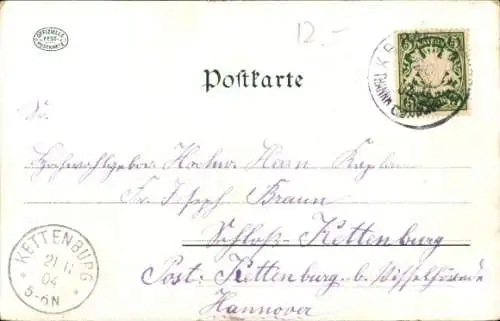 OFFIZIELLE
FEST-
POSTKARTE
12.-
BAYERN
Postkarte
Sr.
Hochwohlgebor. Hochw. Herrn Kaplan
Joseph Braun
Schloß-Kettenburg
Post: Kettenburg b. Visselhövede
Hannover
KETTENBURG
21
04
5-6N